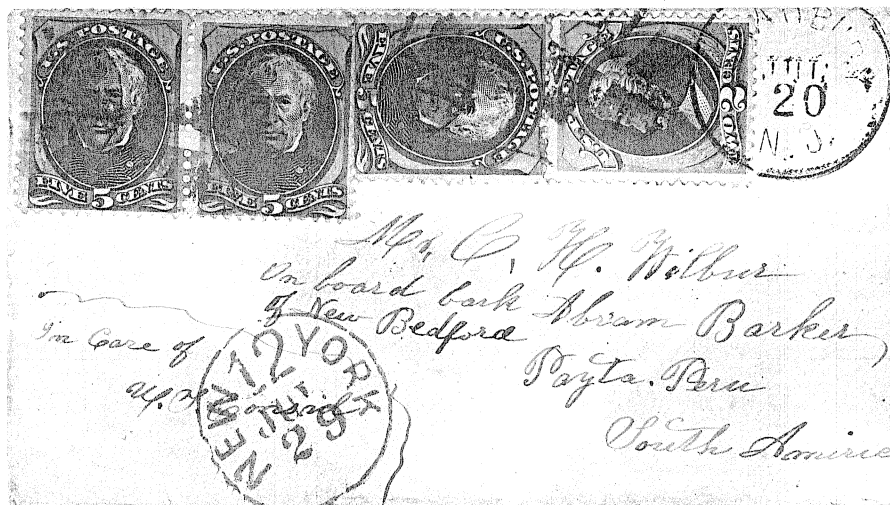 U.S. POSTAGE
FIVE 5 CENTS
U.S. POSTAGE
FIVE 5 CENTS
U.S. POSTAGE
FIVE 5 CENTS
CENTS
20
N.J.
Mr. C. H. Wilbur
On board bark Abram Barker
of New Bedford
Payta. Peru
South Americ
In Care of
U.S.
NEW YORK
12
JUL
29